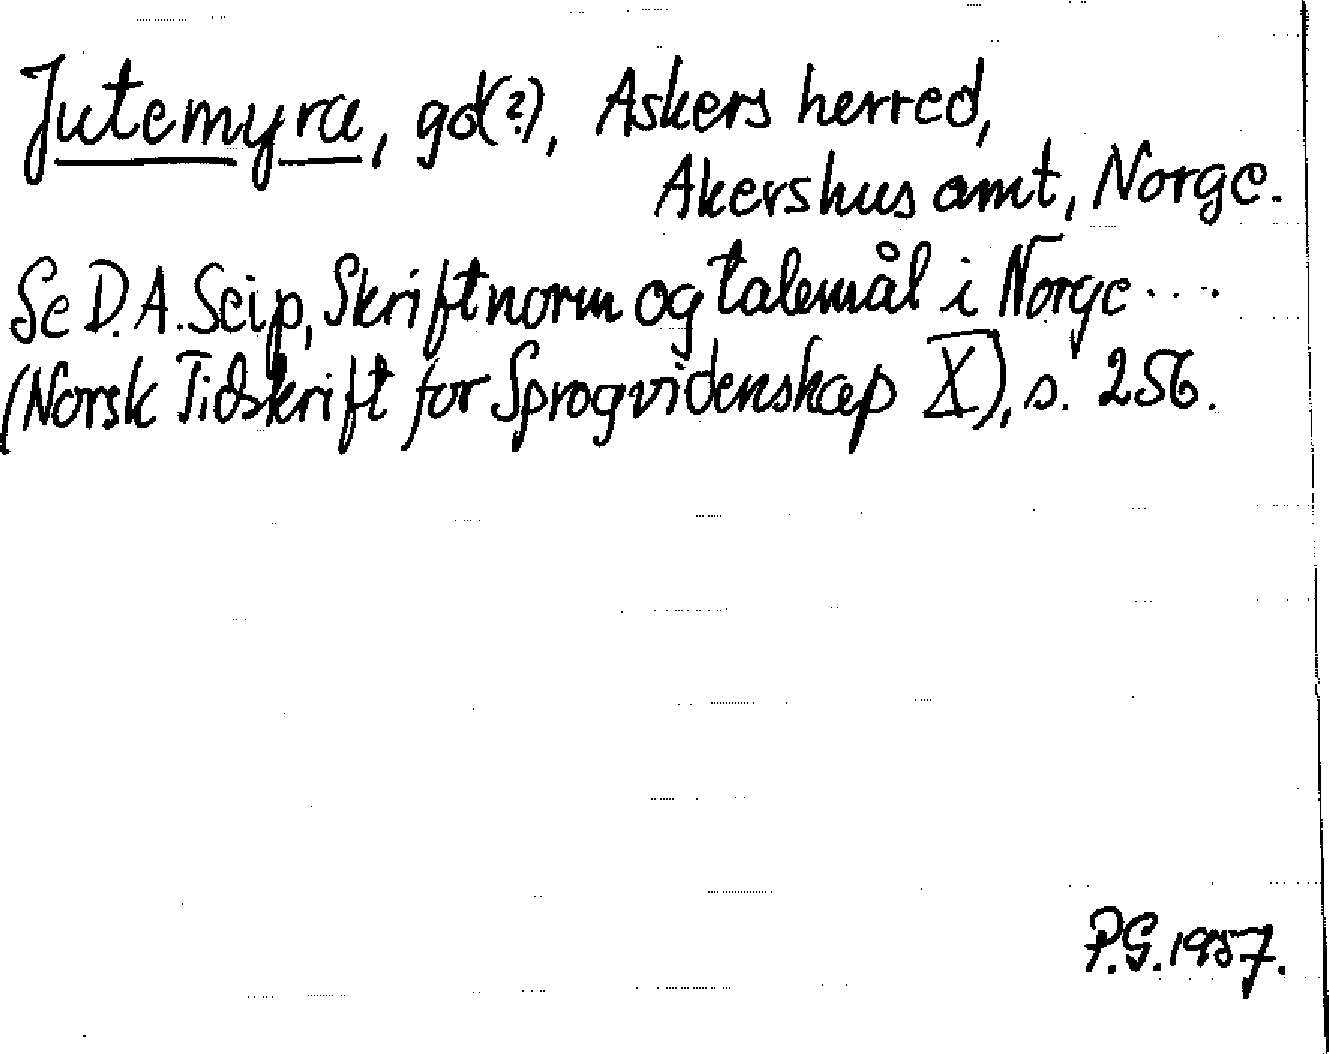 Jutemyra, gd(?), Askers herred,
Akershus amt, Norge.
Se D.A. Seip, Skriftnorm og talemål i Norge ....
(Norsk Tidskrift for Sprogvidenskap X), s. 256.
P.G. 1957.